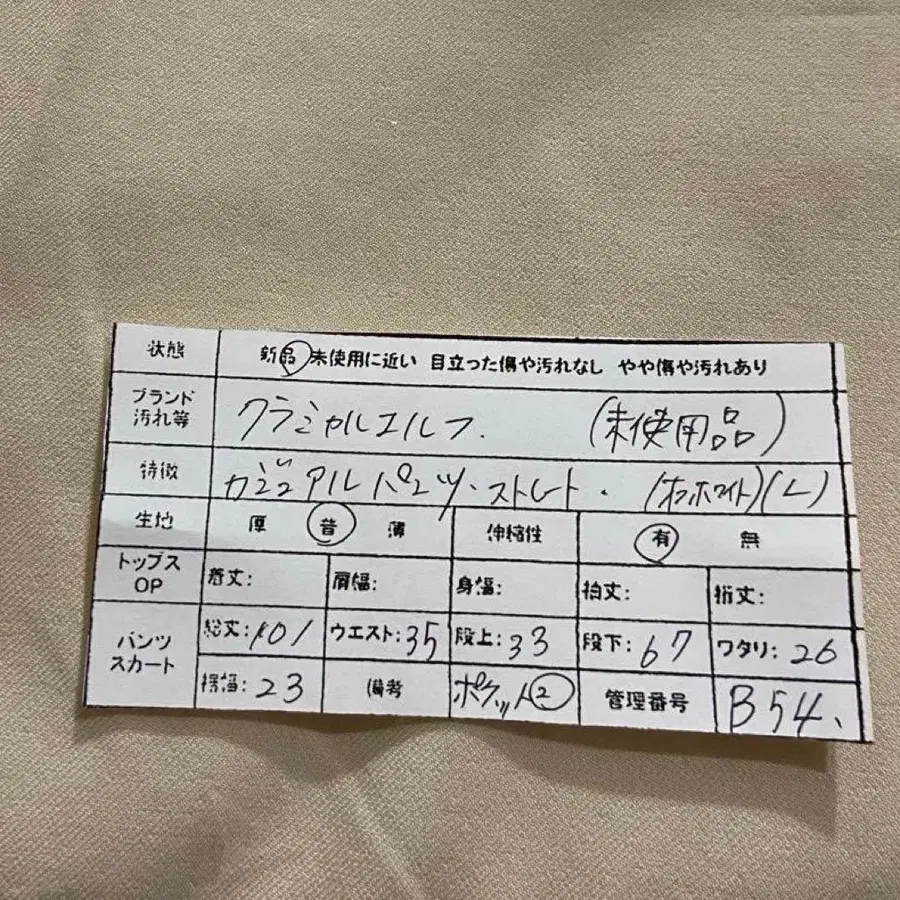 状態 新品 未使用に近い 目立った傷や汚れなし やや傷や汚れあり
ブランド 汚れ等 クラミカルエルフ. (未使用品)
特徴 カジュアルパンツ・ストレート. (オフホワイト)(L)
生地 厚 普 薄 伸縮性 有 無
トップス OP 着丈: 肩幅: 身幅: 袖丈: 裄丈:
パンツ スカート 総丈:101 ウエスト:35 股上:33 股下:67 ワタリ:26
裾幅:23 備考 ポケット② 管理番号 B54、